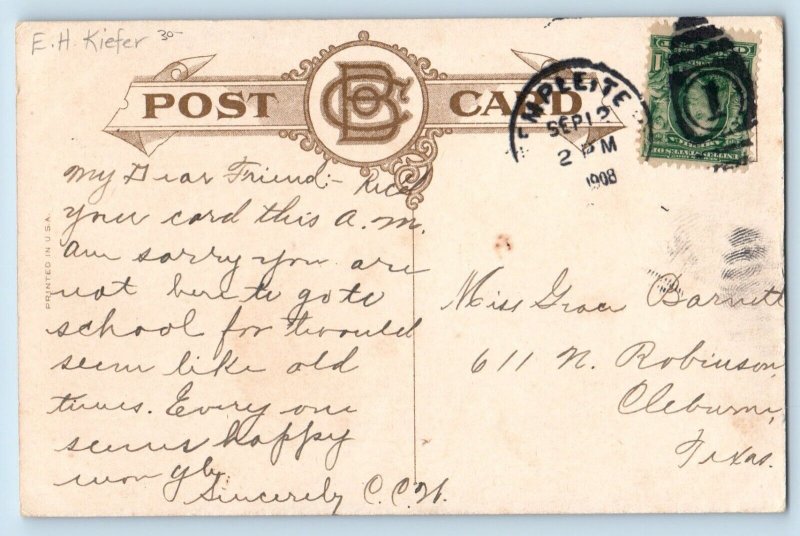 E. H. Kiefer 30-
POST CARD
TEMPLE, TE
SEP 12
2 PM
1908
1
PRINTED IN U.S.A.
My Dear Friend:- Rec'd
your card this a.m.
am sorry you are
not here to go to
school for 'twould
seem like old
times. Every one
seems happy
Sincerely C.C.W.
Miss Grace Barnett
611 N. Robinson,
Cleburne,
Texas.